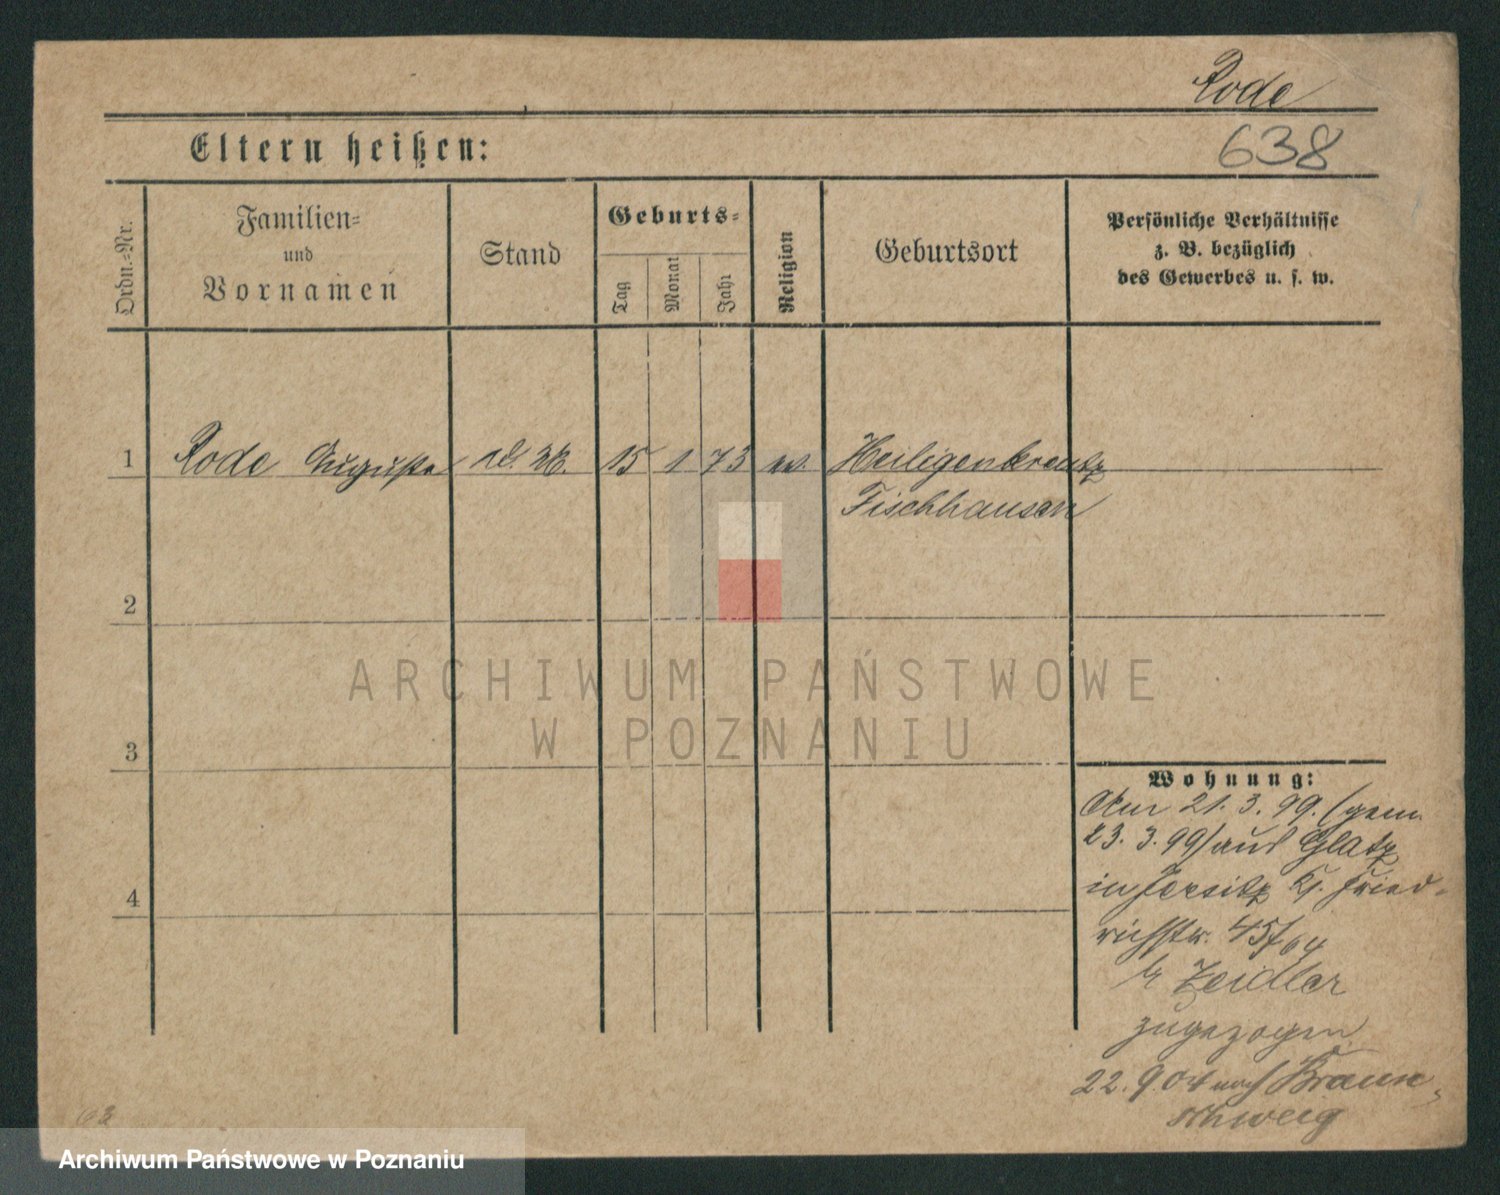 Rode
638
Eltern heißen:
Ordn.-Nr.
Familien-
und
Vornamen
Stand
Geburts-
Tag
Monat
Jahr
Religion
Geburtsort
Persönliche Verhältnisse
z. B. bezüglich
des Gewerbes u. s. w.
1 Rode Auguste 15 1 73 ev. Heiligenkreutz
Fischhausen
2
3
4
Wohnung:
Am 21. 3. 99. (gem.
23. 3. 99) aus Glatz
in Jersitz Fried-
richstr. 45/64
b/ Zeidler
zugezogen
22. 9. 04 nach Braun-
schweig
63
ARCHIWUM PAŃSTWOWE
W POZNANIU
Archiwum Państwowe w Poznaniu